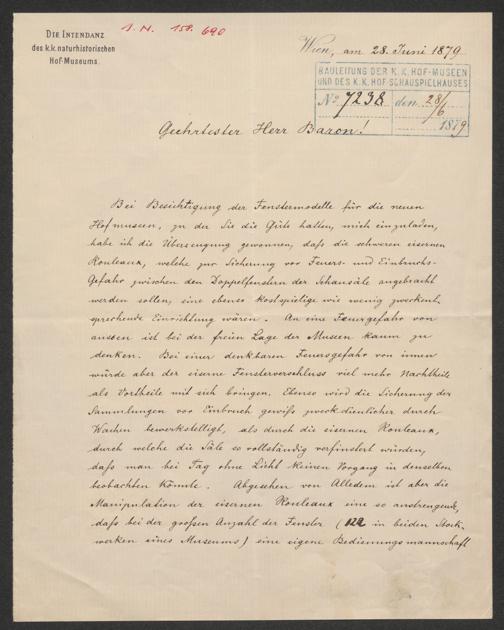 Die Intendanz
des k.k. naturhistorischen
Hof-Museums.
I.N. 158.690
Wien, am 28. Juni 1879
BAULEITUNG DER K.K. HOF-MUSEEN
UND DES K.K. HOF-SCHAUSPIELHAUSES
No 7238 den 28/6
1879
Geehrtester Herr Baron!
Bei Besichtigung der Fenstermodelle für die neuen
Hofmuseen, zu der Sie die Güte hatten, mich einzuladen,
habe ich die Überzeugung gewonnen, daß die schweren eisernen
Rouleaux, welche zur Sicherung vor Feuers- und Einbruchs-
Gefahr zwischen den Doppelfenstern der Schausäle angebracht
werden sollen, eine ebenso kostspielige wie wenig zweckent-
sprechende Einrichtung wären. An eine Feuergefahr von
aussen ist bei der freien Lage der Museen kaum zu
denken. Bei einer denkbaren Feuersgefahr von innen
würde aber der eiserne Fensterverschluss viel mehr Nachtheile
als Vortheile mit sich bringen. Ebenso wird die Sicherung der
Sammlungen vor Einbruch gewiß zweckdienlicher durch
Wachen bewerkstelligt, als durch die eisernen Rouleaux,
durch welche die Säle so vollständig verfinstert würden,
daß man bei Tag ohne Licht keinen Vorgang in denselben
beobachten könnte. Abgesehen von Alledem ist aber die
Manipulation der eisernen Rouleaux eine so anstrengende,
daß bei der großen Anzahl der Fenster (122 in beiden Stock-
werken eines Museums) eine eigene Bedienungsmannschaft